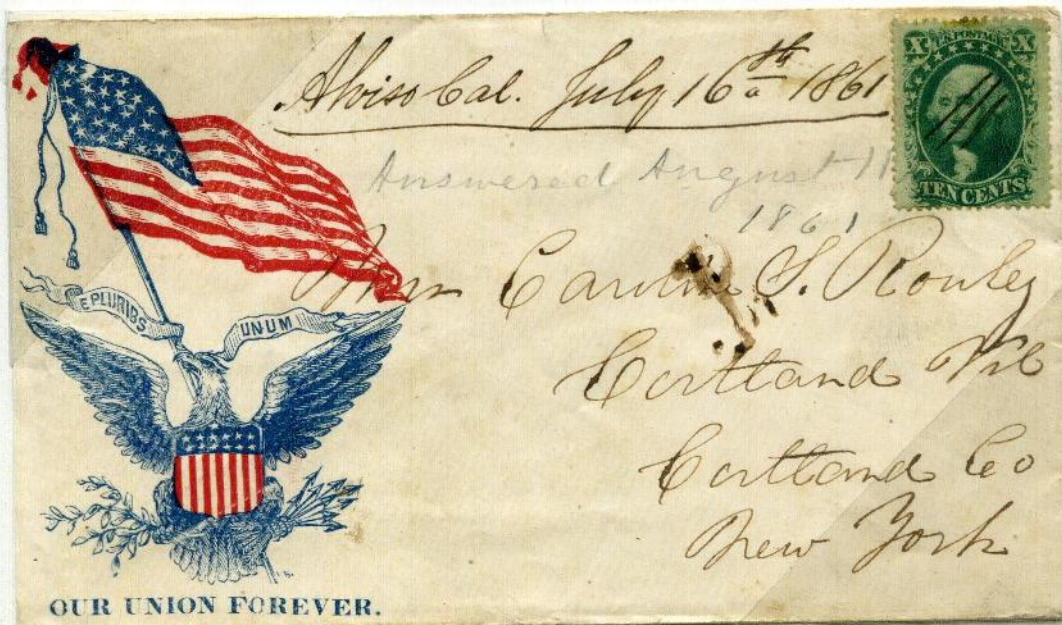 Alviso Cal. July 16th 1861
X U.S. POSTAGE X
TEN CENTS
Answered August 11
1861
E PLURIBS UNUM
S. Rowley
Cortland Vil
Cortland Co
New York
OUR UNION FOREVER.